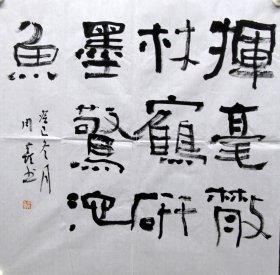 揮毫散
林鶴研
墨驚池
魚
癸巳冬月